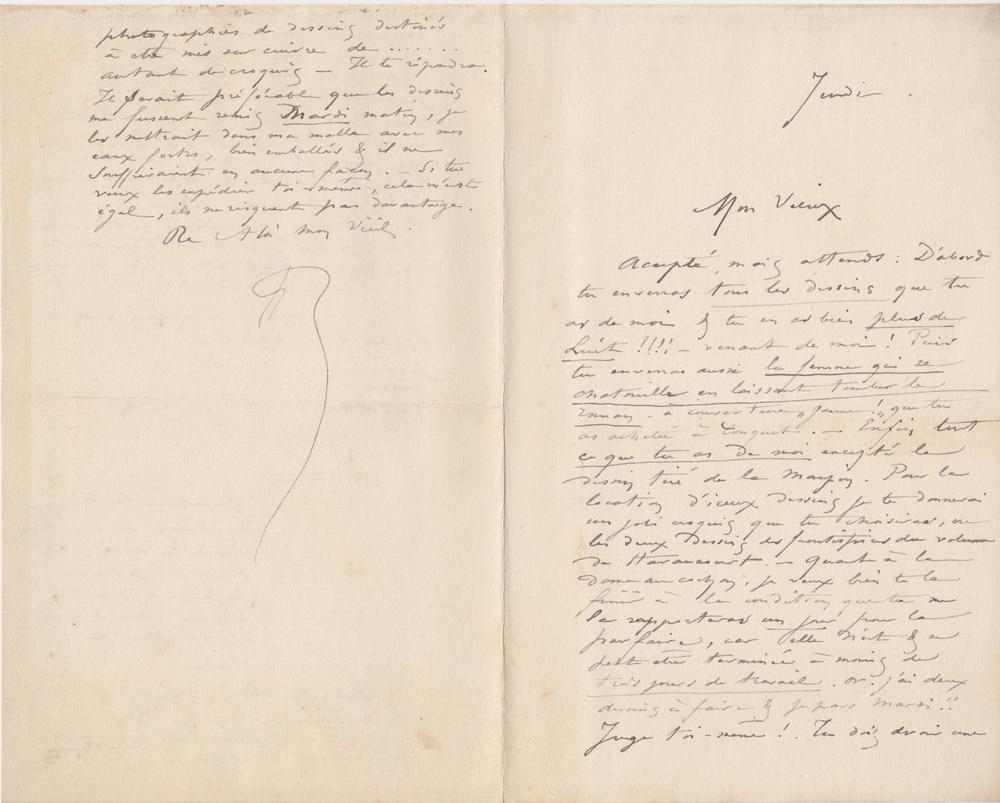 Jeudi.
Mon Vieux
Accepté, mais attends : D'abord
tu enverras tous les dessins que tu
as de moi & tu en as bien plus de
huit !!!! – venant de moi ! Puis
tu enverras aussi la femme qui se
chatouille en laissant tomber le
– à couverture „jaune!„ que tu
as acheté à Conquet. – Enfin tout
ce que tu as De moi excepté le
dessin tiré de la Maison. Pour la
location d'iceux Dessins je te donnerai
un joli croquis que tu choisiras, ou
les deux Dessins des frontispices du volume
de Haraucourt. – Quant à la
Dame au cochon, je veux bien te la
finir à la condition que tu me
la rapporteras un jour pour la
parfaire, car elle n'est & ne
peut être terminée à moins de
trois jours de travail. Or j'ai deux
dessins à faire & je pars Mardi !!
Juge toi-même ! Tu dois avoir une
photographies de dessins destinés
à être mis sur cuivre de .......
autant de croquis – Je te répondrai.
Il serait préférable que les dessins
me fussent remis Mardi matin, je
les mettrait dans ma malle avec mes
eaux fortes, bien emballés & il ne
souffriraient en aucune façon. – Si tu
veux les expédier toi-même, cela m'est
égal, ils ne risquent pas davantage.
mon Vieil.